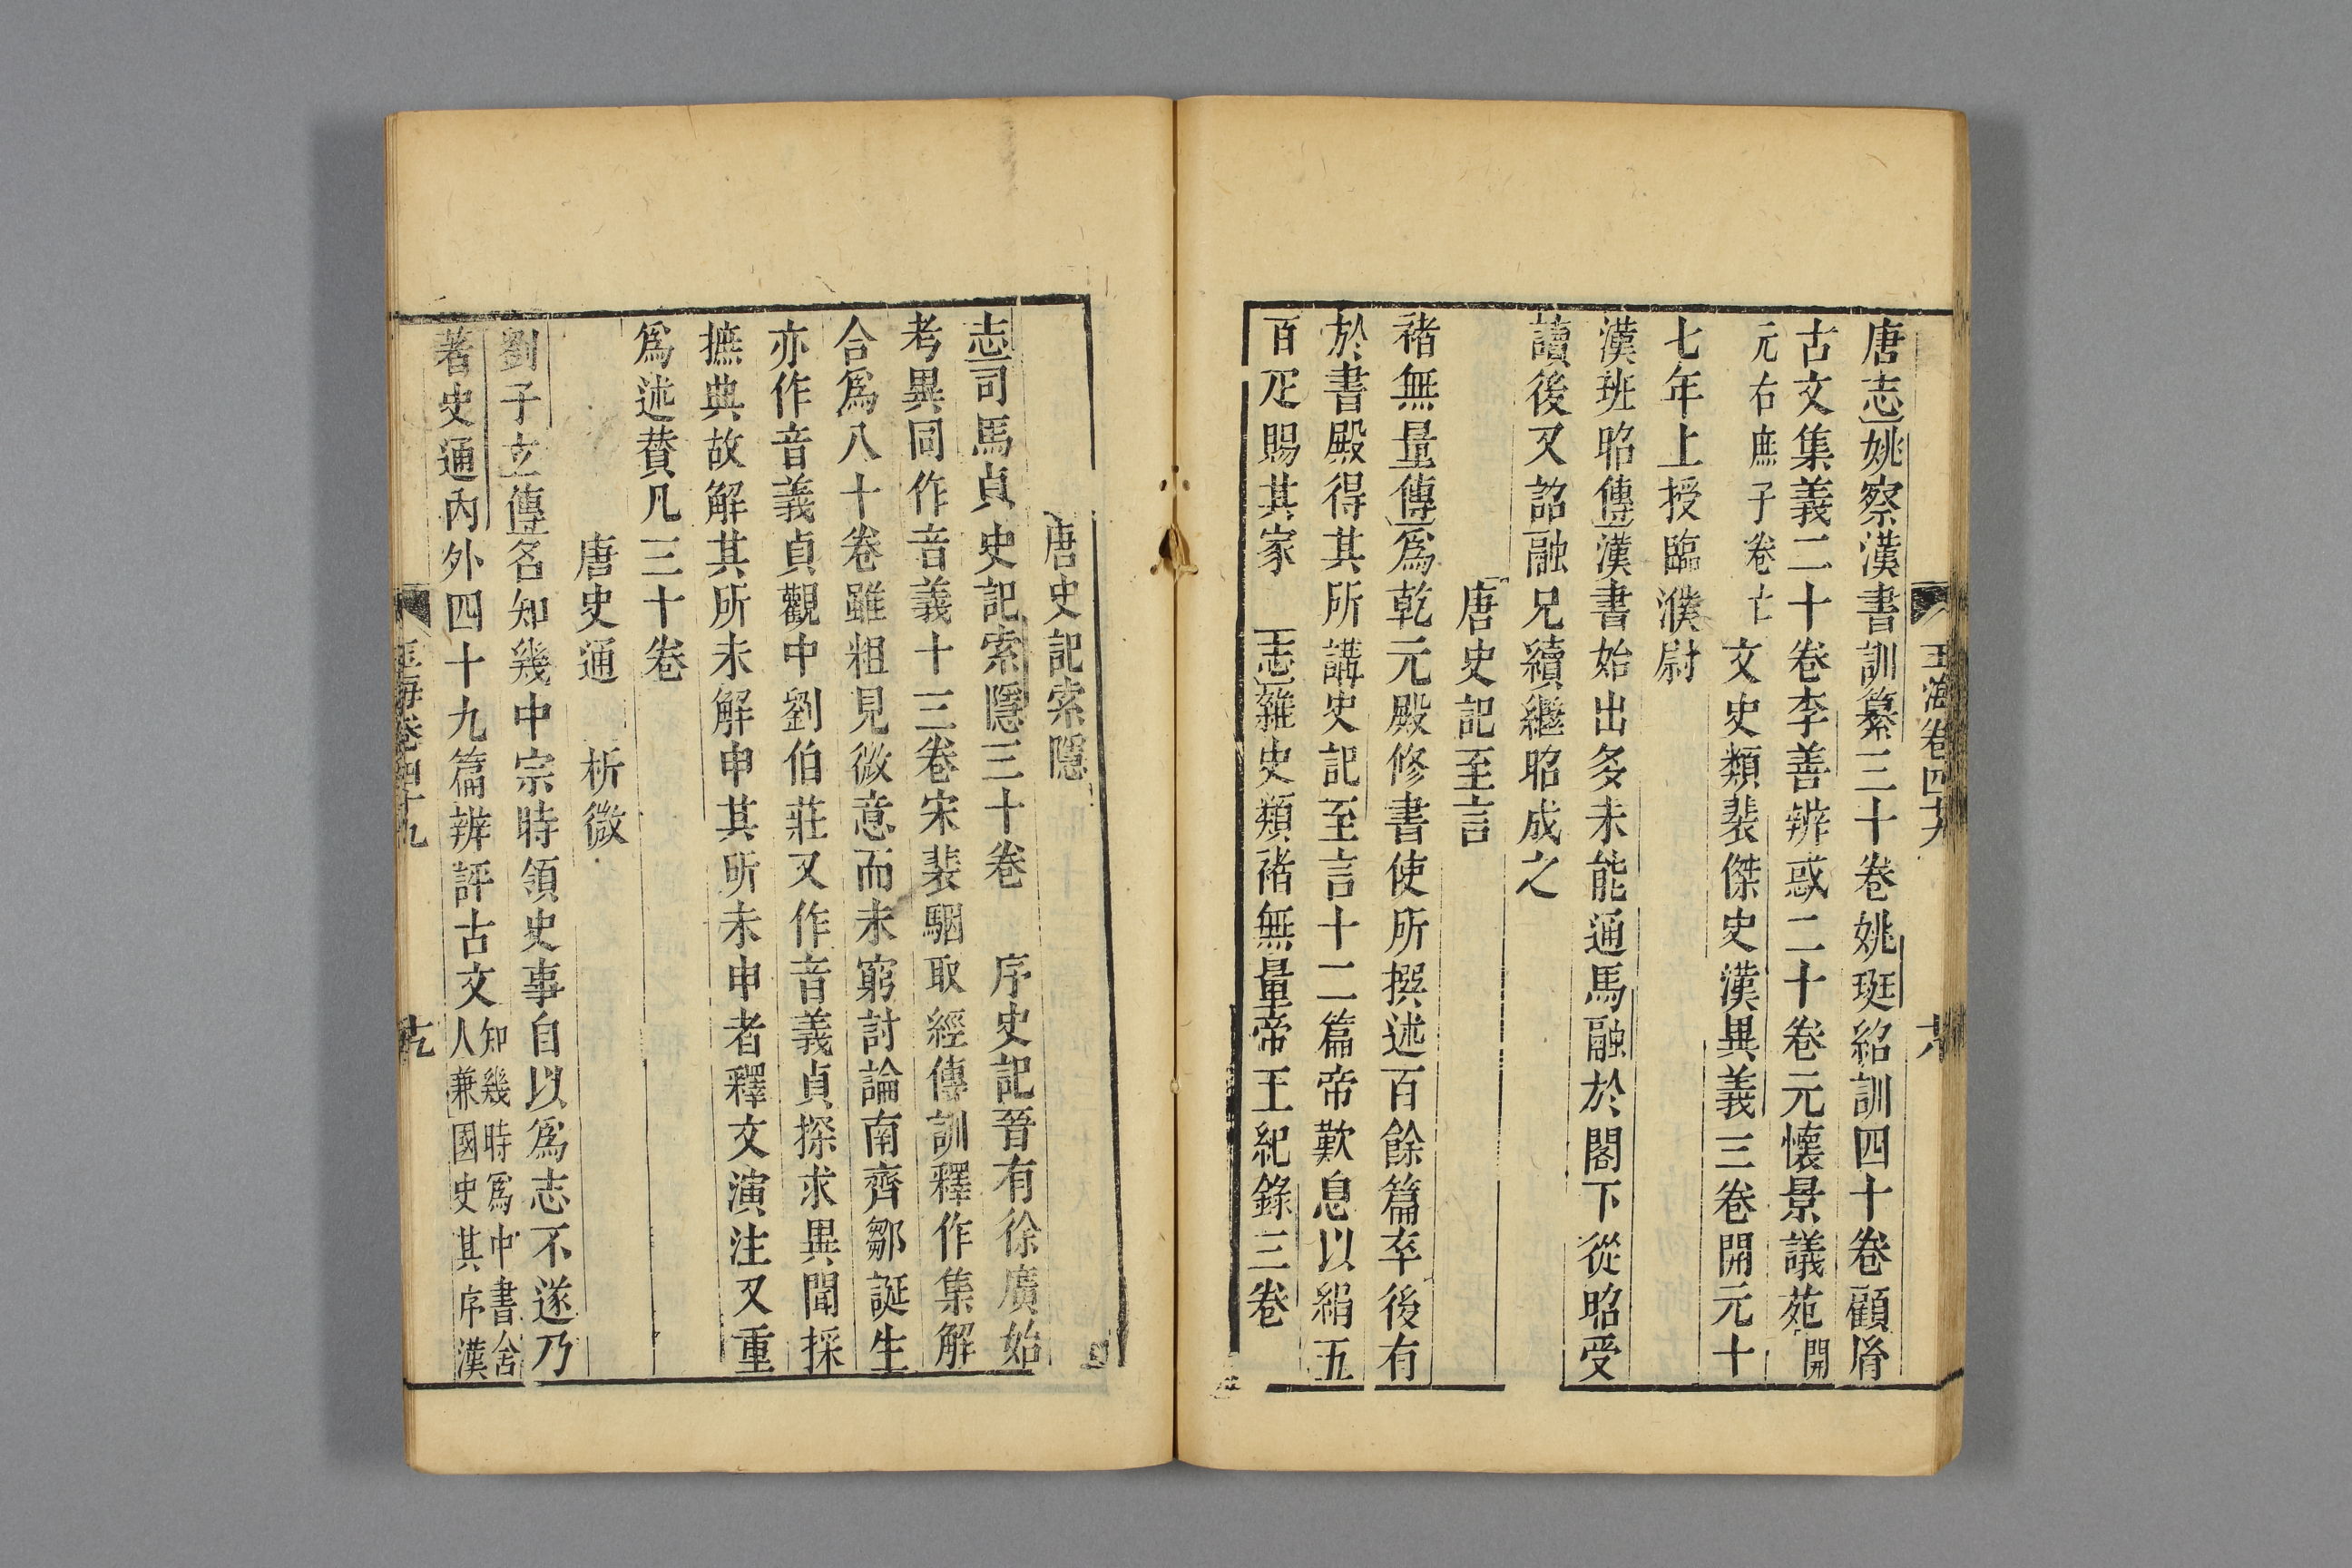 玉海卷四十九
十八
唐志姚察漢書訓纂三十卷姚珽紹訓四十卷顧胤
古文集義二十卷李善辨惑二十卷元懷景議苑開
元右庶子卷亡文史類裴傑史漢異義三卷開元十
七年上授臨濮尉
漢班昭傳漢書始出多未能通馬融於閣下從昭受
讀後又詔融兄續繼昭成之
唐史記至言
褚無量傳爲乾元殿修書使所撰述百餘篇卒後有
於書殿得其所講史記至言十二篇帝歎息以絹五
百疋賜其家 志雜史類褚無量帝王紀錄三卷
唐史記索隱
志司馬貞史記索隱三十卷 序史記晉有徐廣始
考異同作音義十三卷宋裴駰取經傳訓釋作集解
合爲八十卷雖粗見微意而未窮討論南齊鄒誕生
亦作音義貞觀中劉伯莊又作音義貞探求異聞採
摭典故解其所未解申其所未申者釋文演注又重
爲述贊凡三十卷
唐史通 析微
劉子玄傳名知幾中宗時領史事自以爲志不遂乃
著史通內外四十九篇辨評古文知幾時爲中書舍
人兼國史其序漢
玉海卷四十九
十九